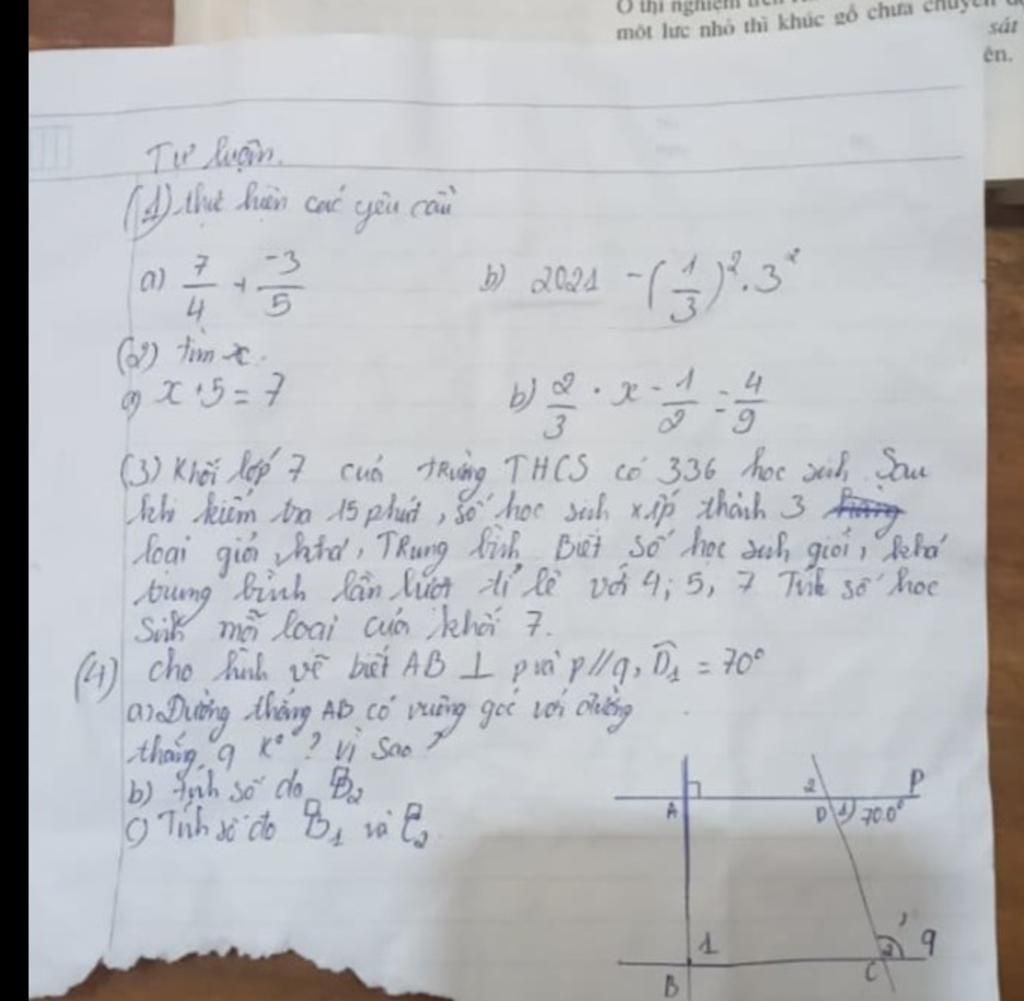 Ở thí nghiệm trên
một lực nhỏ thì khúc gỗ chưa chuyển
sát
ên.
Tự luận.
(1) thực hiện các yêu cầu
a) 7/4 + -3/5 b) 2021 - (1/3)² . 3²
(2) tìm x.
a) x + 5 = 7 b) 2/3 . x - 1/2 = 4/9
(3) Khối lớp 7 của trường THCS có 336 học sinh, Sau
khi kiểm tra 15 phút, số học sinh xếp thành 3
loại giỏi, khá, Trung bình Biết số học sinh giỏi, khá
trung bình lần lượt tỉ lệ với 4; 5, 7 Tính số học
sinh mỗi loại của khối 7.
(4) cho hình vẽ biết AB ⊥ p và p // q, D̂₁ = 70°
a) Đường thẳng AB có vuông góc với đường
thẳng q k° ? vì sao ?
b) tính số đo D̂₂
c) Tính số đo B̂₁ và Ĉ₂
2 P
A D 1 70.0°
1 2 q
B C